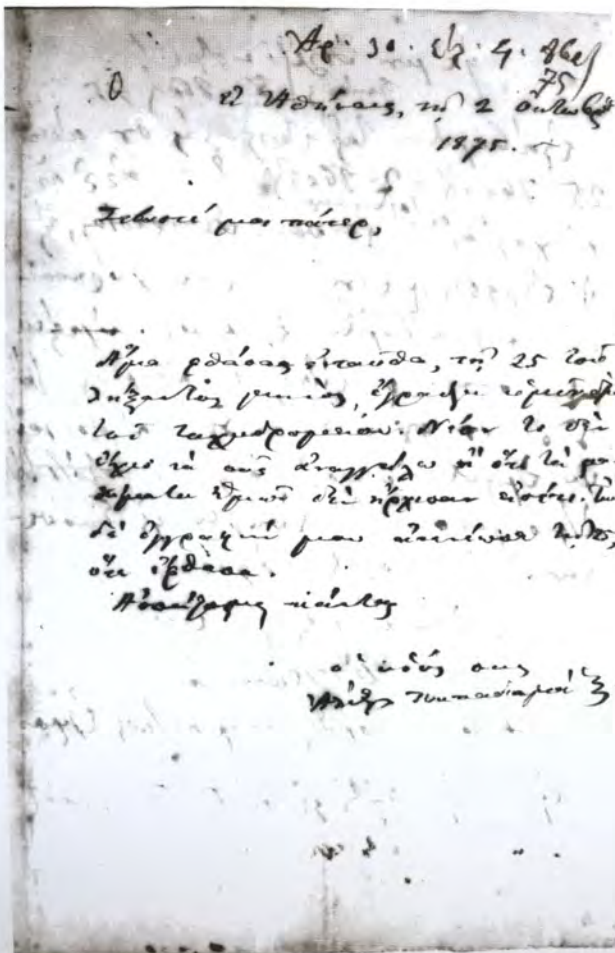 Ἀρ. 10. ἐλ. 4. 8βρ
75
Ἐν Ἀθήναις, τῇ 2 Ὀκτωβρ
1875.
Σεβαστέ μοι πάτερ,
Ἅμα φθάσας ἐνταῦθα, τῇ 25 τοῦ
λήξαντος μηνός, ἔγραψα
τοῦ ταχυδρομείου. Νέον τι δὲν
ἔχω νὰ σᾶς ἀναγγείλω ἢ ὅτι τὰ μα-
θήματα ἡμῶν δὲν ἤρχισαν εἰσέτι.
δὲ ἐγγραφή μου
ὅτι ἔφθασα.
Ἀσπάζομαι πάντας
ὁ υἱός σας
Ἀλέξ. Παπαδιαμάντης